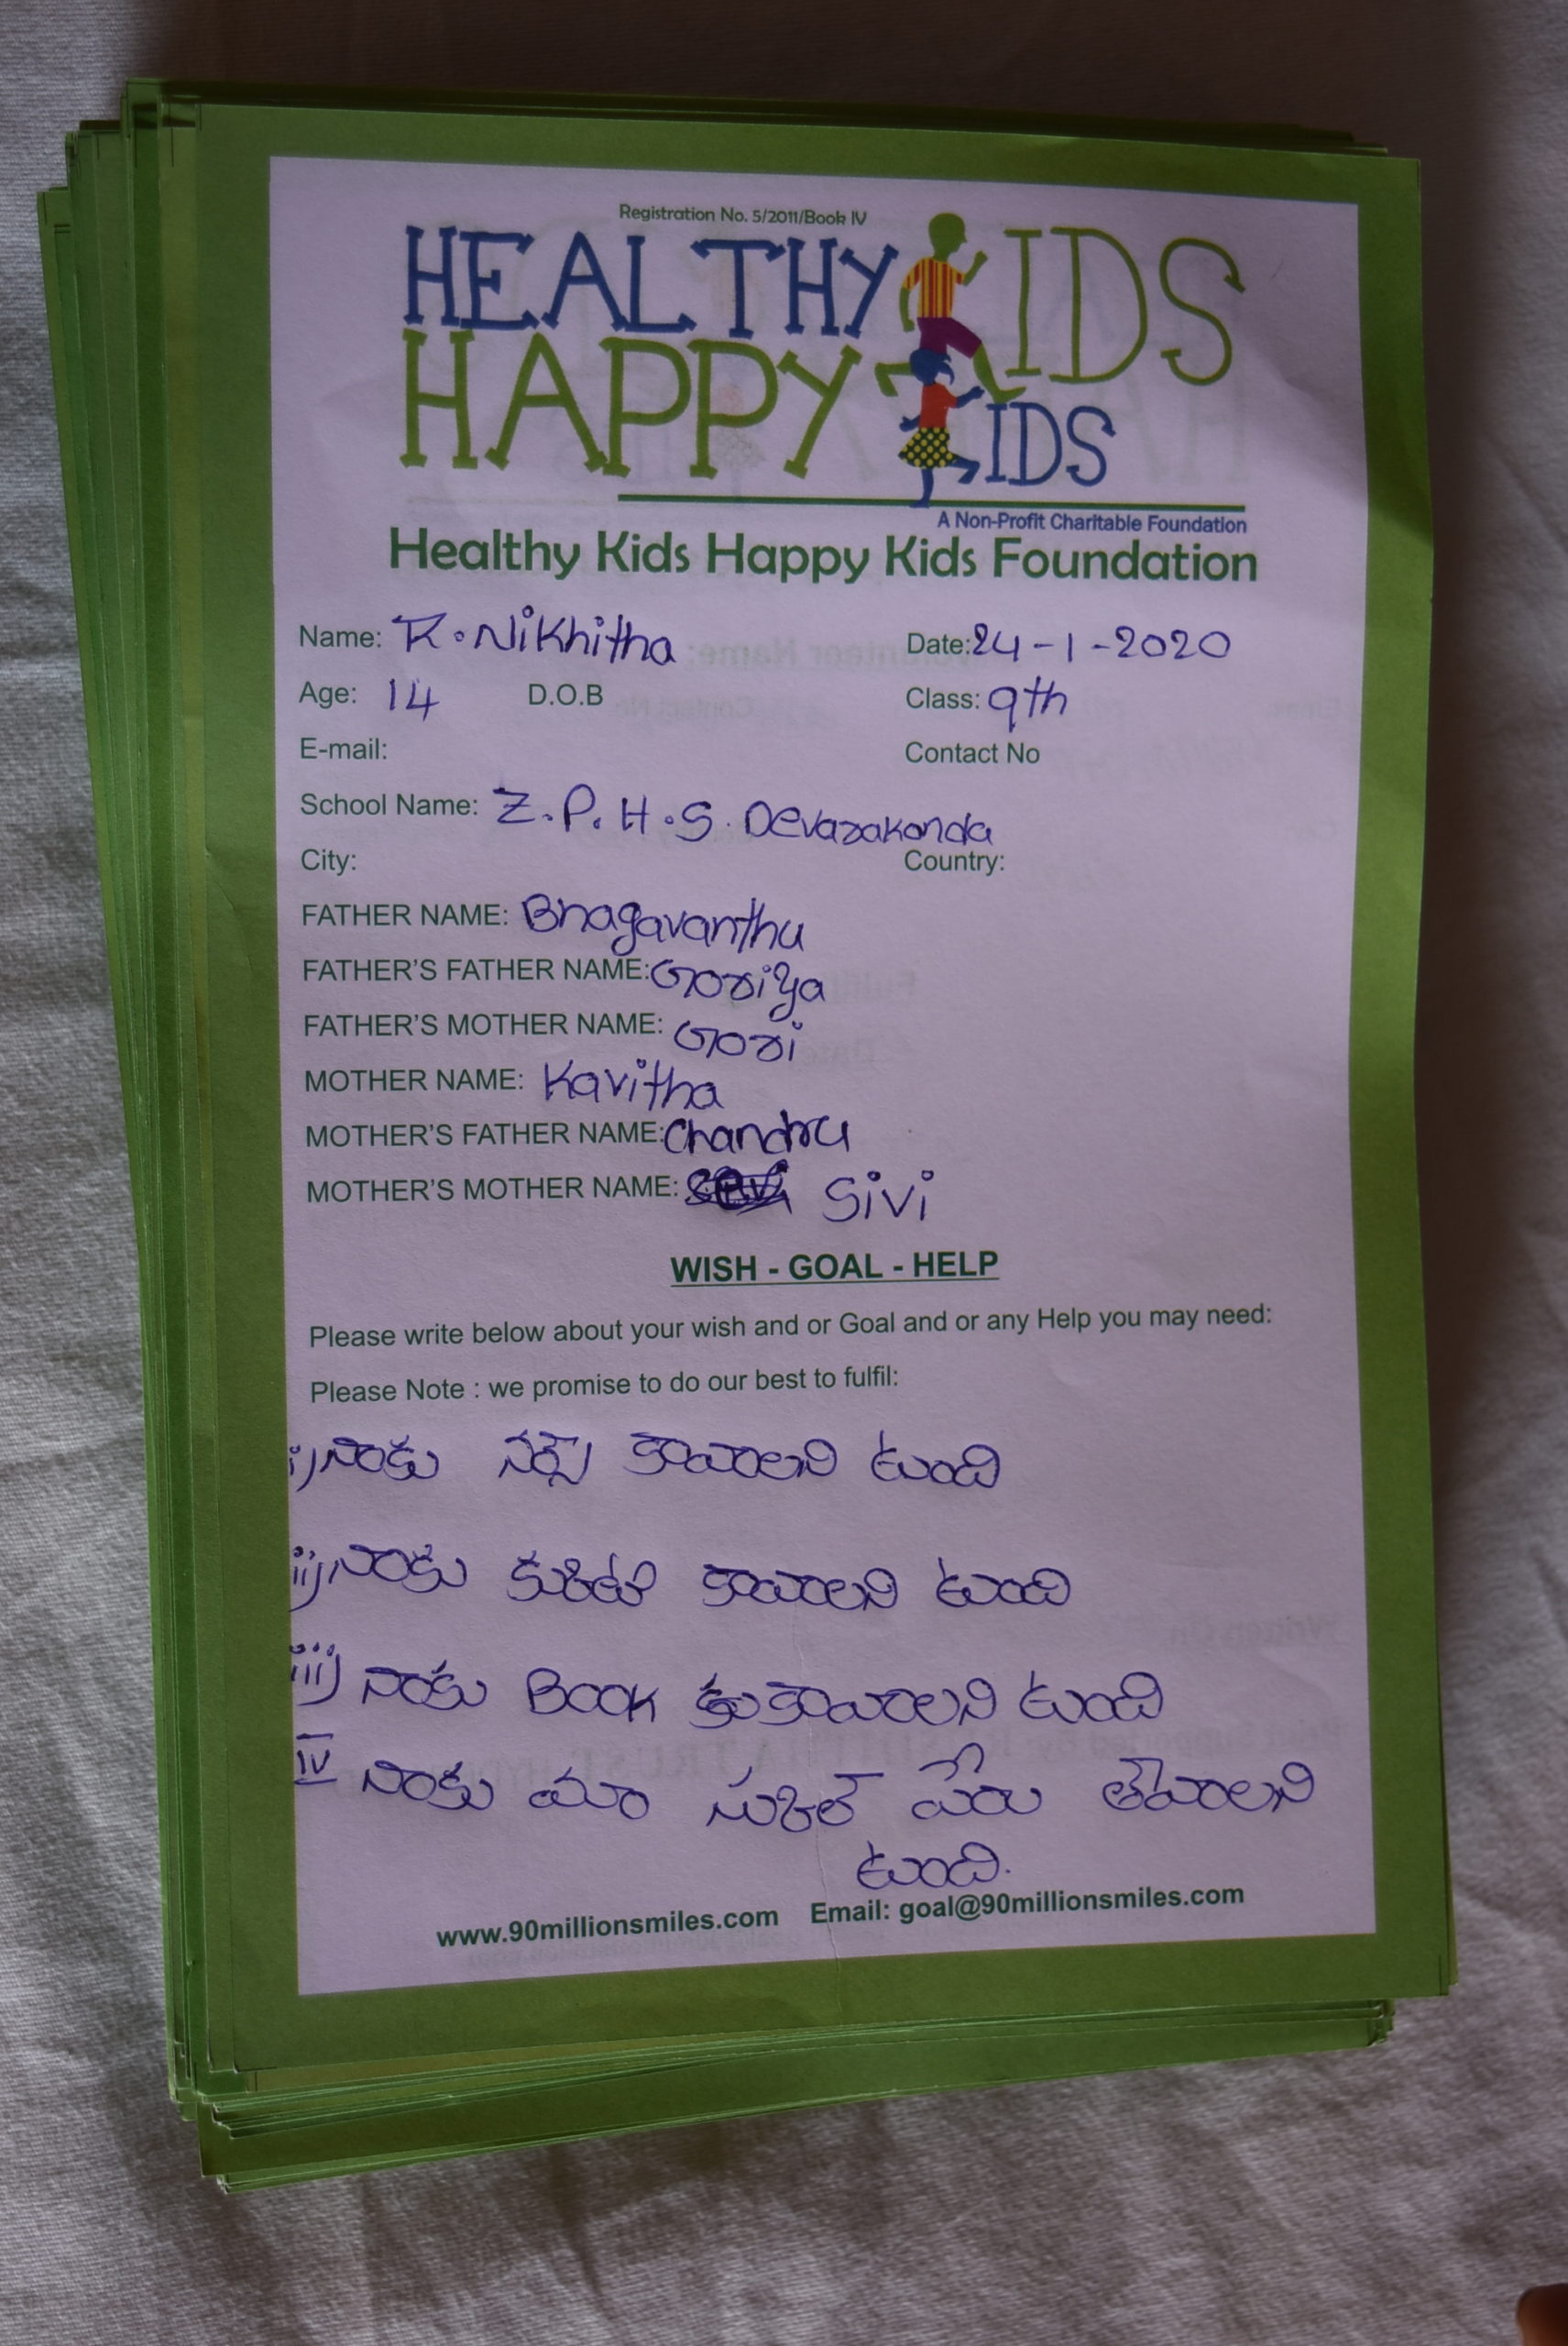 Registration No. 5/2011/Book IV
HEALTHY KIDS
HAPPY KIDS
A Non-Profit Charitable Foundation
Healthy Kids Happy Kids Foundation
Name: R. Nikhitha Date: 24-1-2020
Age: 14 D.O.B Class: 9th
E-mail: Contact No
School Name: Z.P.H.S. Devarakonda
City: Country:
FATHER NAME: Bhagavanthu
FATHER'S FATHER NAME: Goriya
FATHER'S MOTHER NAME: Gori
MOTHER NAME: Kavitha
MOTHER'S FATHER NAME: Chandru
MOTHER'S MOTHER NAME: Sivi
WISH - GOAL - HELP
Please write below about your wish and or Goal and or any Help you may need:
Please Note : we promise to do our best to fulfil:
i) నాకు నర్స్ కావాలని ఉంది
ii) నాకు కావాలని ఉంది
iii) నాకు Book కావాలని ఉంది
IV నాకు మా పేరు తేవాలని
ఉంది.
www.90millionsmiles.com Email: goal@90millionsmiles.com